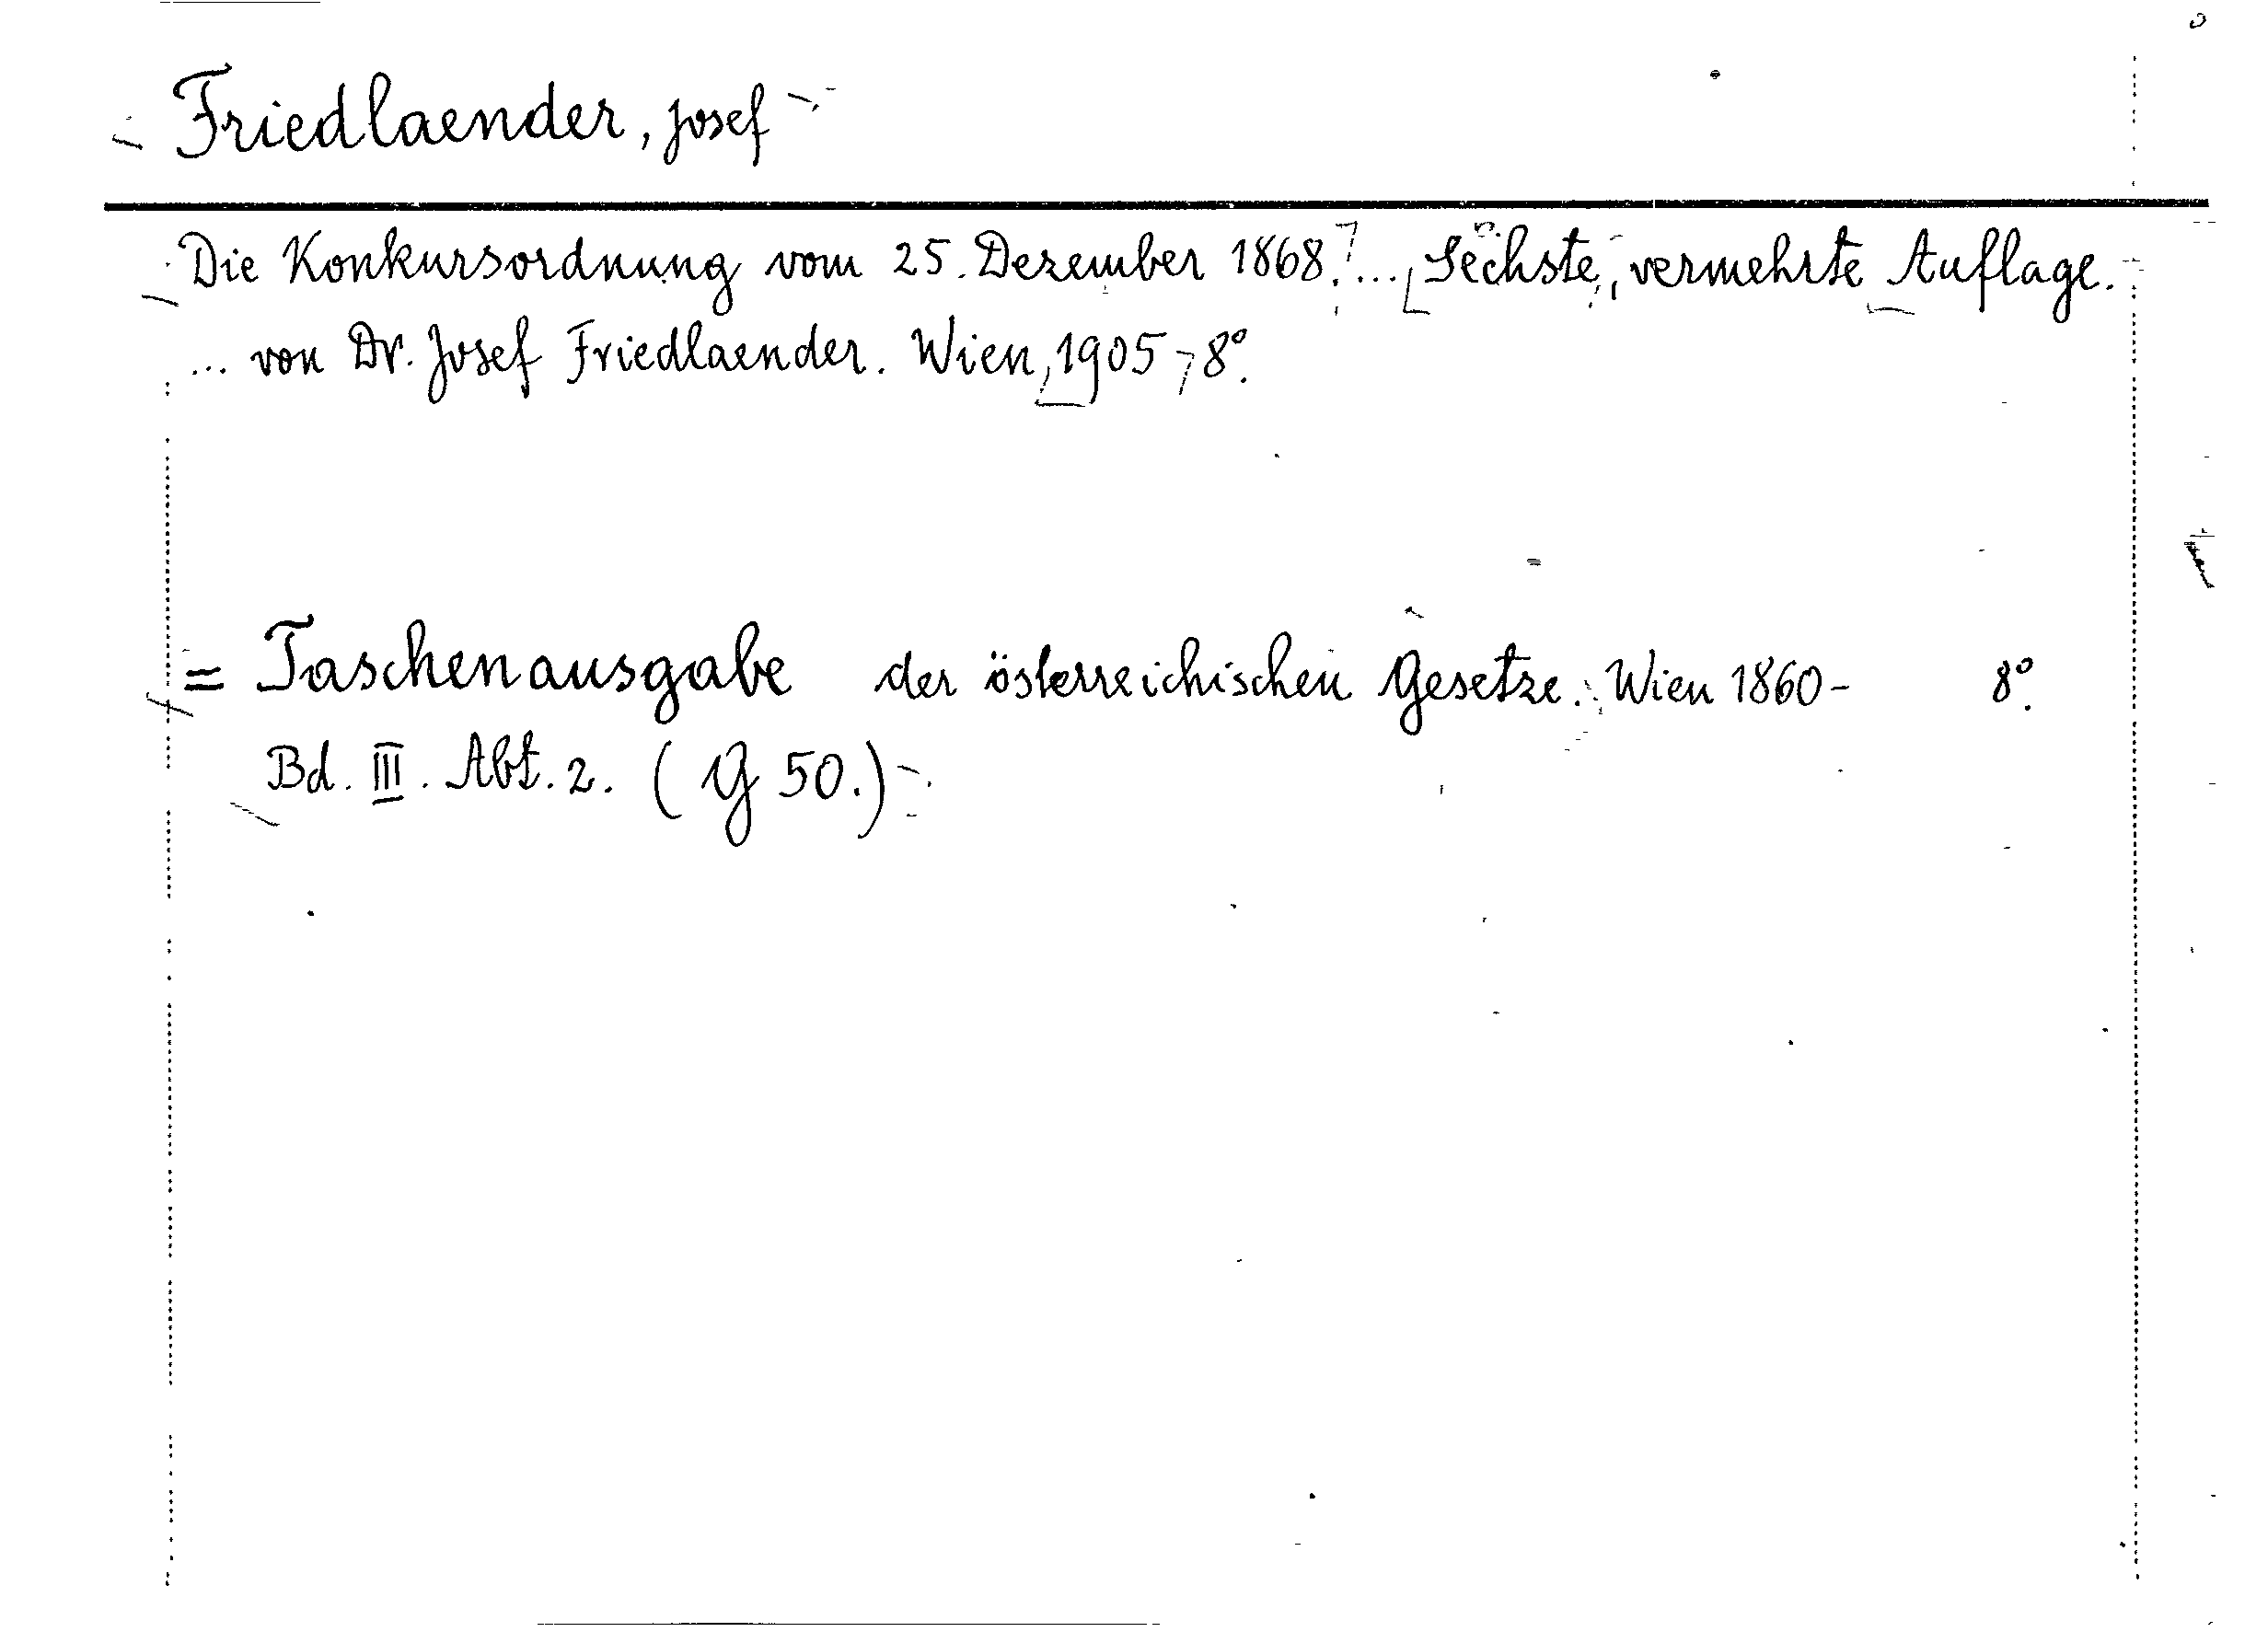 Friedlaender, Josef
Die Konkursordnung vom 25. Dezember 1868. ... Sechste, vermehrte Auflage.
... von Dr. Josef Friedlaender. Wien, 1905, 8°.
= Taschenausgabe der österreichischen Gesetze. Wien 1860- 8°.
Bd. III. Abt. 2. (G 50.)